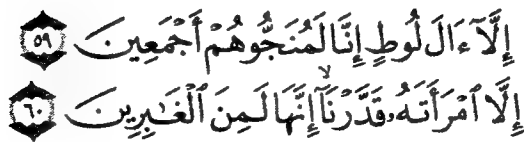 إِلَّآ ءَالَ لُوطٍ إِنَّا لَمُنَجُّوهُمْ أَجْمَعِينَ ٥٩
إِلَّا ٱمْرَأَتَهُۥ قَدَّرْنَآ ۙ إِنَّهَا لَمِنَ ٱلْغَـٰبِرِينَ ٦٠